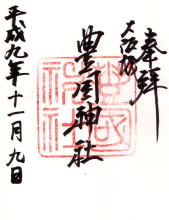 奉拝
大阪城
豊國神社
平成九年十一月九日